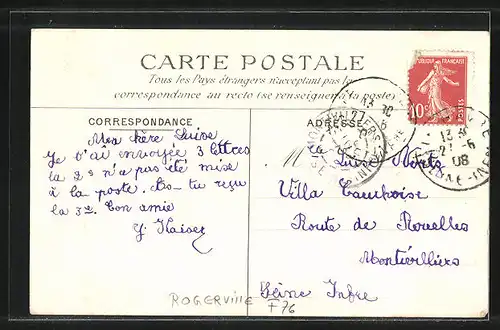 CARTE POSTALE
Tous les Pays étrangers n'acceptant pas la
correspondance au recto (se renseigner à la poste)
CORRESPONDANCE
ADRESSE
Ma chère Luise
Je t'ai envoyée 3 lettres
la 2e n'a pas été mise
à la poste. As-tu reçu
la 3e. Ton amie
Y. Kaiser
Luise
Villa Cauchoise
Route de Rouelles
Montivilliers
Seine Infre
ROGERVILLE
F76
REPUBLIQUE FRANÇAISE
10c
POSTES
13
27-6
08